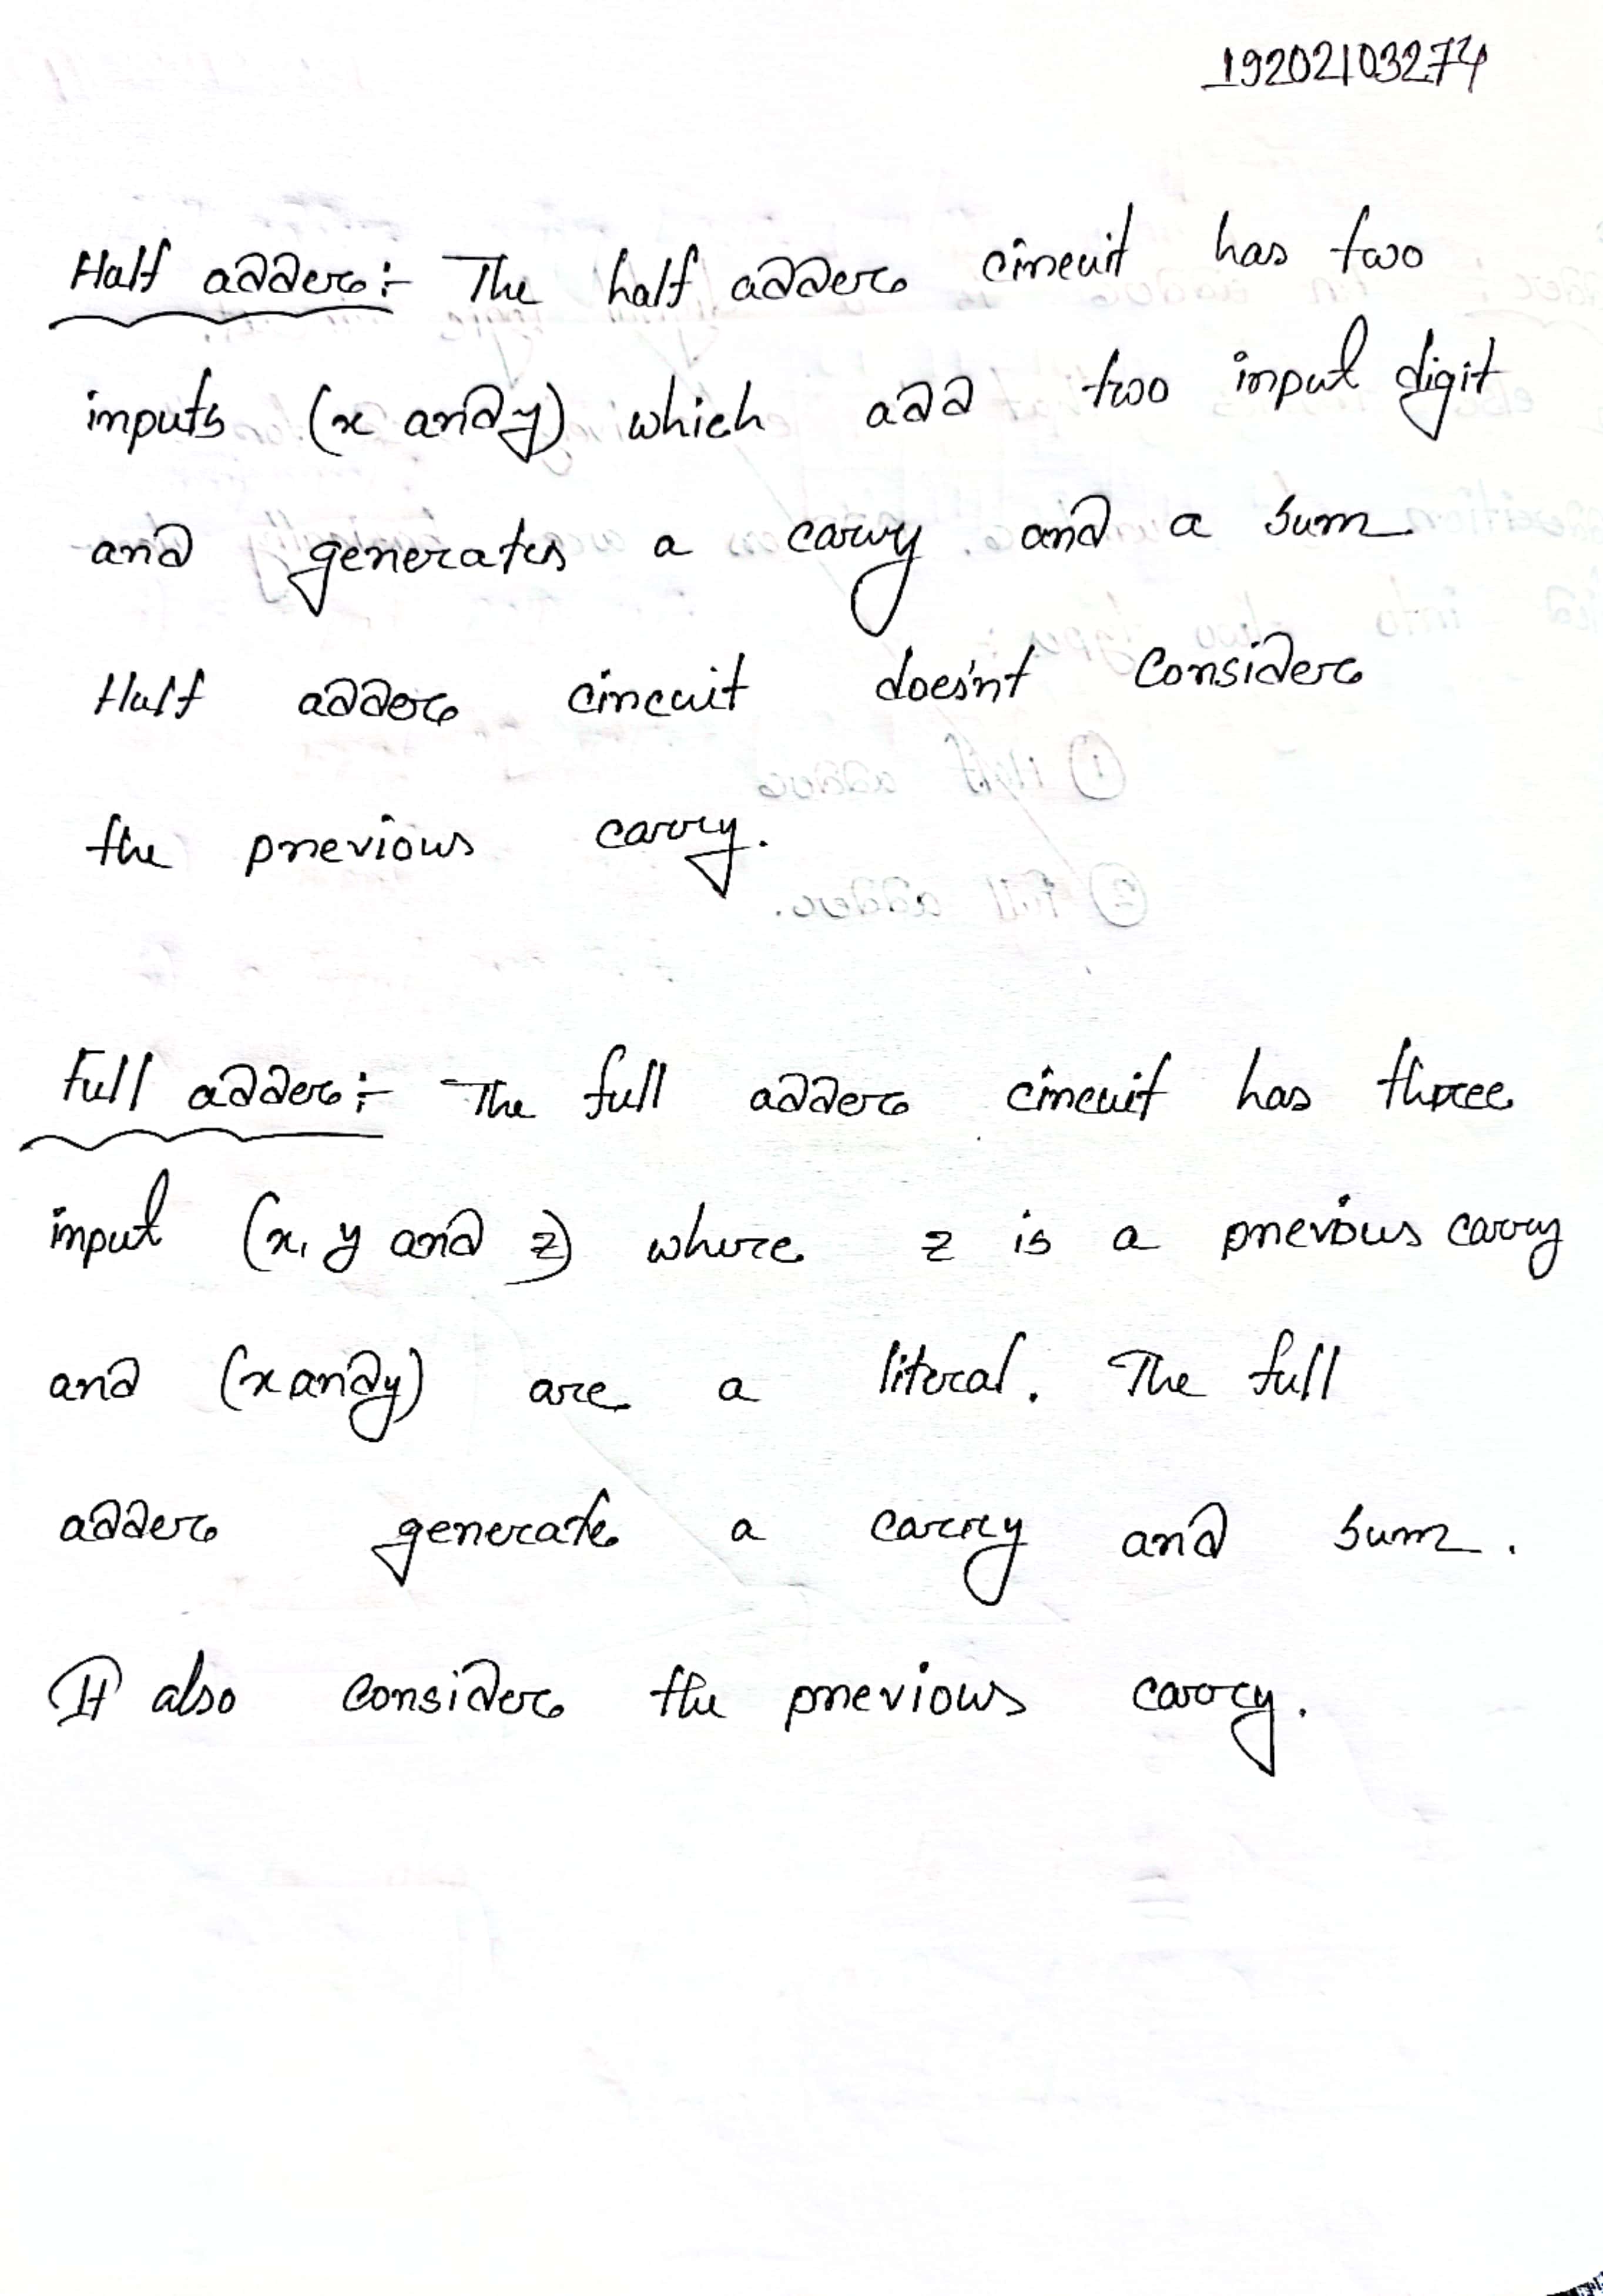 19202103274
Half adder:- The half adder circuit has two
inputs (x and y) which add two input digit
and generates a carry and a sum
Half adder circuit does'nt consider
the previous carry.
Full adder:- The full adder circuit has three
input (x, y and z) where z is a previous carry
and (x and y) are a literal. The full
adder generate a carry and sum.
It also consider the previous carry.